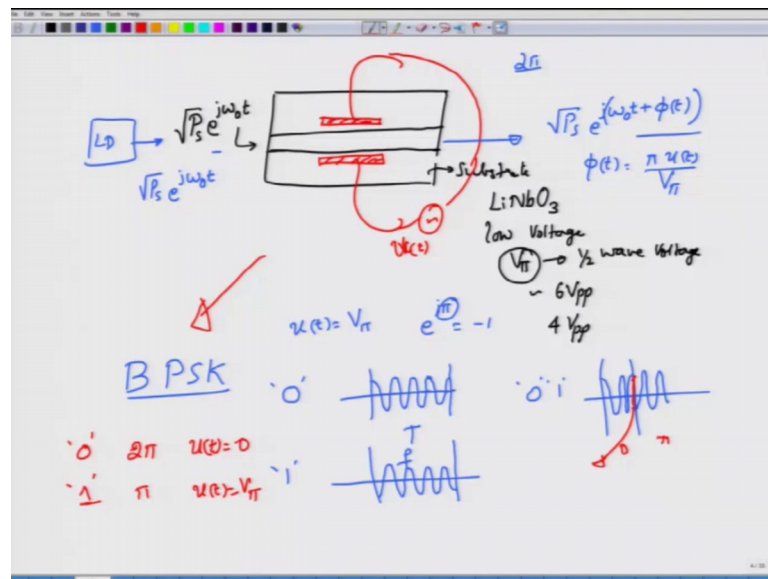 File Edit View Insert Actions Tools Help
2π
LD
√Ps e^jω₀t
√Ps e^jω₀t
√Ps e^j(ω₀t + φ(t))
φ(t) = π u(t) / Vπ
Substrate
LiNbO₃
low voltage
Vπ → ½ wave voltage
~ 6Vpp
4 Vpp
u(t)
u(t) = Vπ e^jπ = -1
BPSK
'0'
'0' '1'
T
'0' 2π u(t)=0
'1' π u(t)=Vπ
'1'
0 π